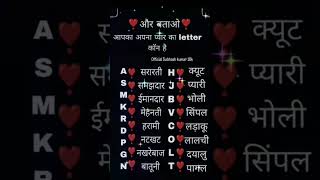 ❤️और बताओ❤️
आपका अपना प्यार का letter
कॉन है
Official Subhash kumar 20k
A ❤️ सरारती H ❤️ क्यूट
S ❤️ समझदार J ❤️ प्यारी
M ❤️ ईमानदार B ❤️ भोली
K ❤️ मेहनती V ❤️ सिंपल
R ❤️ हरामी C ❤️ लड़ाकू
D ❤️ नटखट O ❤️ लालची
P ❤️ नखरेबाज L ❤️ दयालु
G ❤️ बातूनी T ❤️ पागल
N